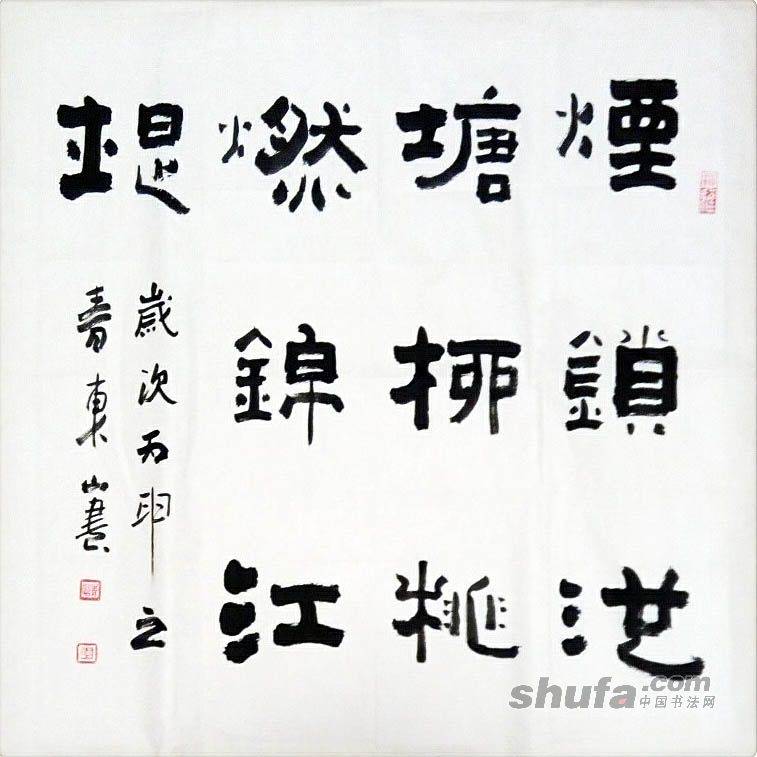 煙鎖池
塘柳桃
燃錦江
堤
歲次丙申之
春東山書
shufa.com
中国书法网